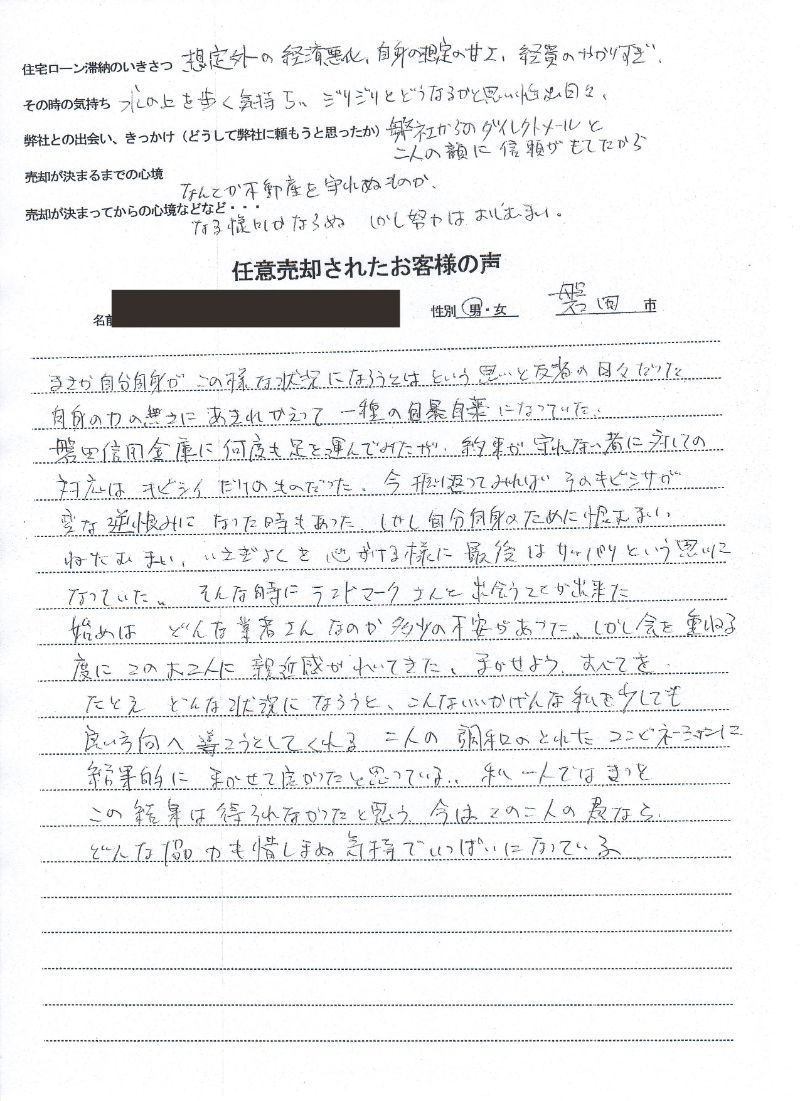 住宅ローン滞納のいきさつ 想定外の経済悪化、自身の想定の甘さ、経費のかかりすぎ、
その時の気持ち 氷の上を歩く気持ち、ジリジリとどうなるかと思い悩む日々、
弊社との出会い、きっかけ（どうして弊社に頼もうと思ったか）弊社からのダイレクトメールと
二人の顔に信頼がもてたから
売却が決まるまでの心境
なんとか不動産を守れぬものか、
売却が決まってからの心境などなど・・・
なる様にしかならぬ しかし努力はおしむまい。
任意売却されたお客様の声
名前 性別 男・女 磐田 市
まさか自分自身がこの様な状況になろうとはという思いと反省の日々だった
自身の力の無さにあきれかえって一種の自暴自棄になっていた、
磐田信用金庫に何度も足を運んでみたが、約束が守れない者に対しての
対応はキビシイだけのものだった、今振り返ってみればそのキビシサが
変な逆恨みになった時もあった しかし自分自身のために恨むまい
ねたむまい、いさぎよくを心がける様に最後はサッパリという思いに
なっていた。 そんな時にランドマークさんと出会うことが出来た
始めは どんな業者さんなのか多少の不安があった、しかし会を重ねる
度にこのお二人に親近感がわいてきた、まかせよう、すべてを、
たとえ どんな状況になろうと、こんないいかげんな私を少しでも
良い方向へ導こうとしてくれる 二人の調和のとれたコンビネーションに
結果的に まかせて良かったと思っている、 私一人ではきっと
この結果は得られなかったと思う 今はこの二人の為なら、
どんな協力も惜しまぬ気持でいっぱいになっている